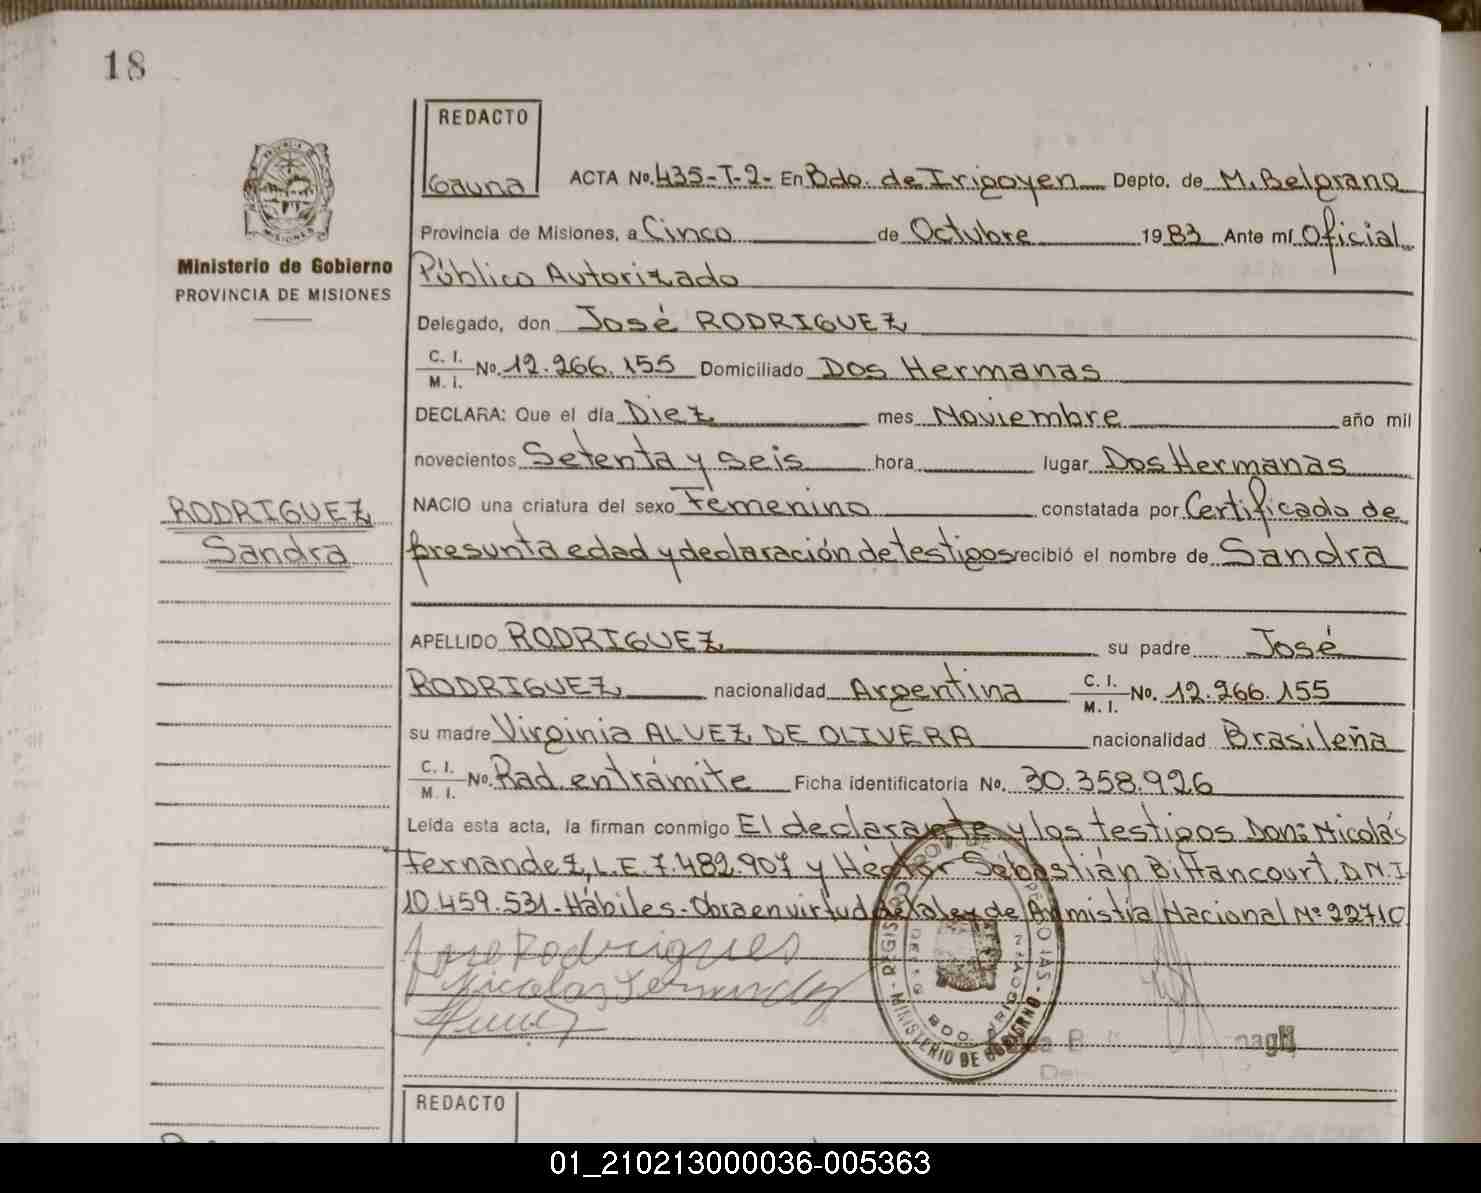 18
REDACTO
Gauna
ACTA No. 435-T-2- En Bdo. de Irigoyen Depto. de M. Belgrano
Provincia de Misiones, a Cinco de Octubre 19 83 Ante mí Oficial
Público Autorizado
Ministerio de Gobierno
PROVINCIA DE MISIONES
Delegado, don José RODRIGUEZ
C. I. M. I. No. 12.266.155 Domiciliado Dos Hermanas
DECLARA: Que el día Diez mes Noviembre año mil
novecientos Setenta y seis hora lugar Dos Hermanas
RODRIGUEZ
Sandra
NACIO una criatura del sexo Femenino constatada por Certificado de
presunta edad y declaración de testigos recibió el nombre de Sandra
APELLIDO RODRIGUEZ su padre José
RODRIGUEZ nacionalidad Argentina C. I. M. I. No. 12.266.155
su madre Virginia ALVEZ DE OLIVERA nacionalidad Brasileña
C. I. M. I. No. Rad. en trámite Ficha identificatoria No. 30.358.926
Leída esta acta, la firman conmigo El declarante y los testigos Don: Nicolás
Fernandez, L.E. 7.482.907 y Héctor Sebastián Bittancourt, D.N.I
10.459.531-Hábiles-Obra en virtud de la ley de Amnistía Nacional Nº 22710
Jose Rodrigues
Nicolas Fernandez
MINISTERIO DE GOBIERNO
BDO. IRIGOYEN
REDACTO
01_210213000036-005363